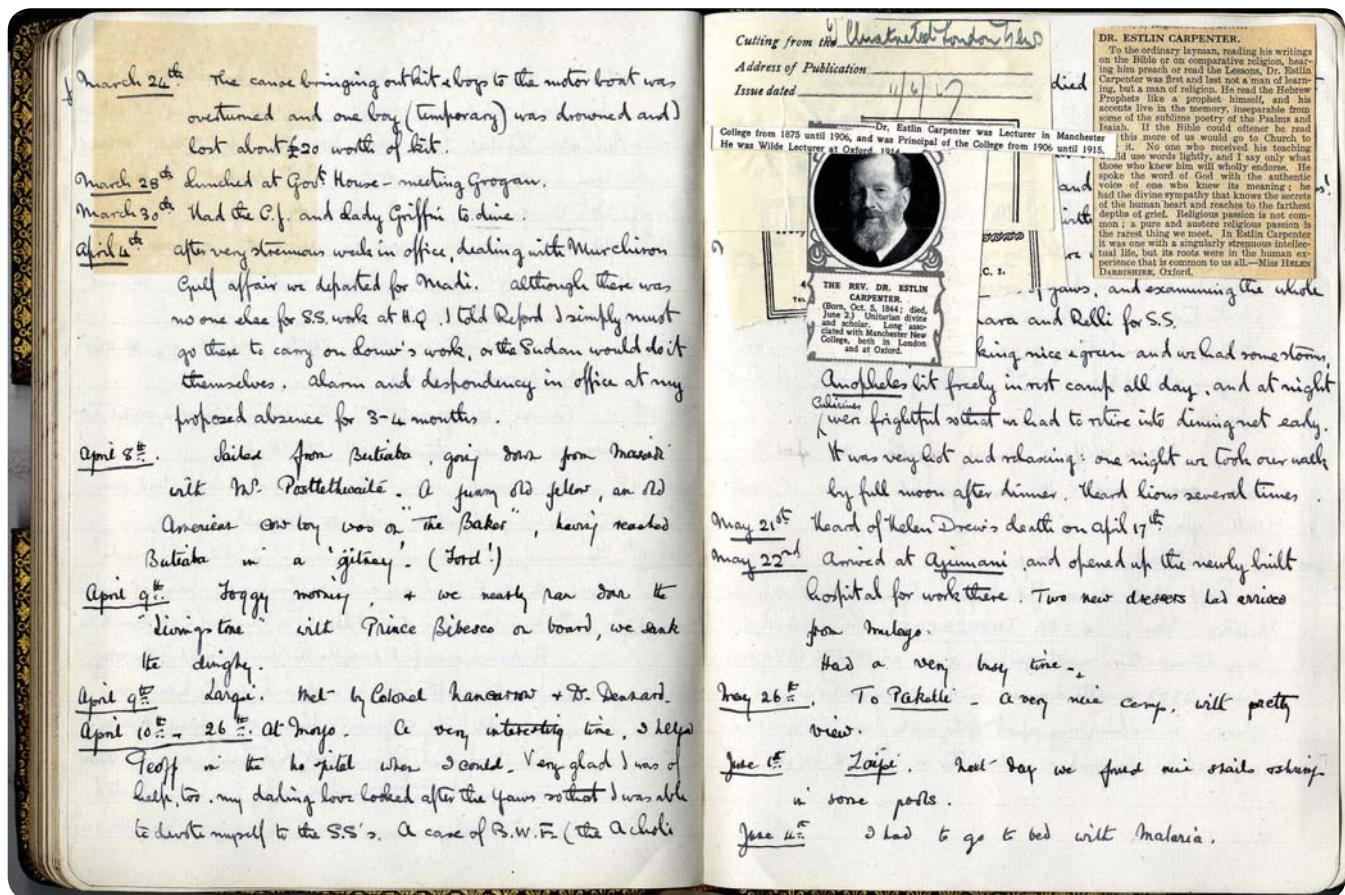 March 24th The canoe bringing out kit & boys to the motor boat was
overturned and one boy (temporary) was drowned and I
lost about £20 worth of kit.
March 28th Lunched at Govt House - meeting Grogan.
March 30th Had the C.J. and Lady Griffin to dine.
April 4th After very strenuous week in office, dealing with Murchison
Gulf affair we departed for Madi. Although there was
no one else for S.S. work at H.Q. I told Reford I simply must
go there to carry on Louw's work, or the Sudan would do it
themselves. Alarm and despondency in office at my
proposed absence for 3-4 months.
April 8th. Sailed from Butiaba, going down from Masindi
with Mr. Postlethwaite. A funny old fellow an old
American cowboy was on "The Baker", having reached
Butiaba in a 'gitney'. (Ford!)
April 9th. Foggy morning, & we nearly ran down the
"Livingstone" with Prince Bibesco on board, we sank
the dinghy.
April 9th. Laropi. Met by Colonel Nancarrow & Dr. Dennard.
April 10th - 26th. At Moyo. A very interesting time, I helped
Geoff in the hospital when I could. Very glad I was of
help, too. My darling love looked after the yaws so that I was able
to devote myself to the S.S's. A case of B.W.F. (the Acholi
Cutting from the Illustrated London News
Address of Publication
Issue dated 11/6/27
Dr. Estlin Carpenter was Lecturer in Manchester
College from 1875 until 1906, and was Principal of the College from 1906 until 1915.
He was Wilde Lecturer at Oxford, 1914
THE REV. DR. ESTLIN
CARPENTER.
(Born, Oct. 5, 1844; died,
June 2.) Unitarian divine
and scholar. Long asso-
ciated with Manchester New
College, both in London
and at Oxford.
C. 1.
DR. ESTLIN CARPENTER.
To the ordinary layman, reading his writings
on the Bible or on comparative religion, hear-
ing him preach or read the Lessons, Dr. Estlin
Carpenter was first and last not a man of learn-
ing, but a man of religion. He read the Hebrew
Prophets like a prophet himself, and his
accents live in the memory, inseparable from
some of the sublime poetry of the Psalms and
Isaiah. If the Bible could oftener be read
this more of us would go to Church to
it. No one who received his teaching
use words lightly, and I say only what
those who knew him will wholly endorse. He
spoke the word of God with the authentic
voice of one who knew its meaning; he
had the divine sympathy that knows the secrets
of the human heart and reaches to the farthest
depths of grief. Religious passion is not com-
mon; a pure and austere religious passion is
the rarest thing we meet. In Estlin Carpenter
it was one with a singularly strenuous intellec-
tual life, but its roots were in the human ex-
perience that is common to us all.—Miss HELEN
DARBISHIRE, Oxford.
died
and
yaws, and examining the whole
and Relli for S.S.
king nice & green and we had some storms.
Anopheles bit freely in rest camp all day, and at night
Culicines
were frightful so that we had to retire into dining net early.
It was very hot and relaxing: one night we took our walk
by full moon after dinner. Heard lions several times.
May 21st Heard of Helen Drew's death on April 17th
May 22nd Arrived at Ajumani and opened up the newly built
hospital for work there. Two new dressers had arrived
from Mulago.
Had a very busy time.
May 26th. To Pakelle - A very nice camp, with pretty
view.
June 1st. Zoipe. Next day we found nice snails
in some pools.
June 4th. I had to go to bed with Malaria.